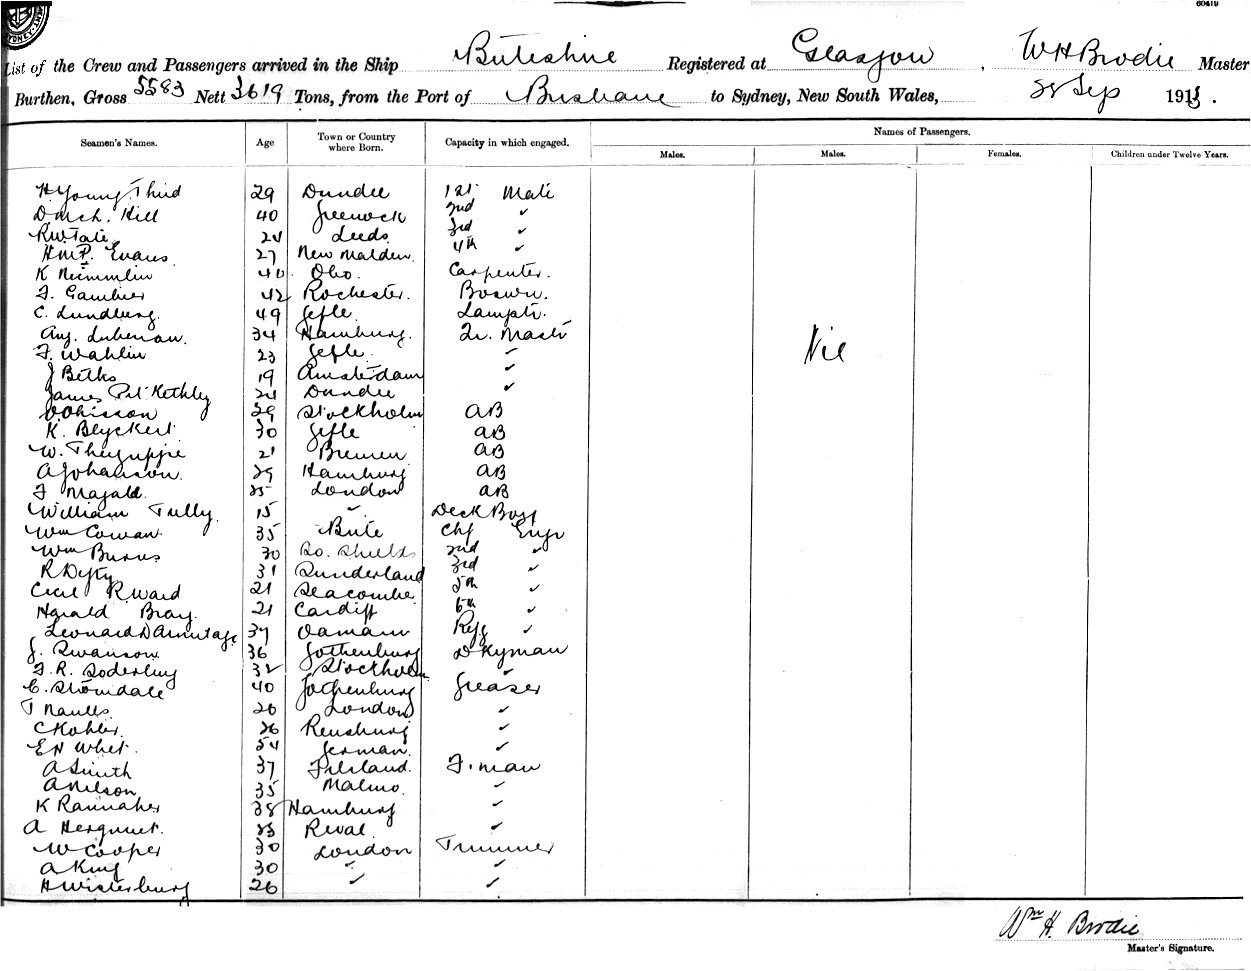 60419
List of the Crew and Passengers arrived in the Ship Buteshire Registered at Glasgow, W H Brodie Master
Burthen, Gross 5583 Nett 3619 Tons, from the Port of Brisbane to Sydney, New South Wales, Sep 191
Seamen's Names. Age Town or Country where Born. Capacity in which engaged. Names of Passengers.
Males. Males. Females. Children under Twelve Years.
H. Young Third 29 Dundee 1st Mate
Hill 40 Greenock 2nd ✓
R W Tate 24 Leeds 3rd ✓
H M P. Evans 27 New Malden. 4th ✓
K 40 Carpenter.
F. Gambier 42 Rochester. Boswn.
C. Lundberg. 49 Gefle. Lamptr.
Aug. Lubenau. 34 Hamburg. Qr. Mastr
Nil
F. Wahlin 23 Gefle. ✓
J Betks 19 Amsterdam ✓
James Kethley 24 Dundee ✓
29 Stockholm AB
K. Blyckert 30 Gefle AB
W. 21 Bremen AB
A Johanson. 29 Hamburg AB
F Magald. 25 London AB
William Tully. 15 ✓ Deck Boy
Wm Cowan. 35 Bute Chf Engr
Wm Burns 30 So. Shields 2nd ✓
R Defty 31 Sunderland 3rd ✓
Cecil R Ward 21 Seacombe. 5th ✓
Harald Bray. 21 Cardiff 6th ✓
Leonard D Armitage 37 Oamaru Refg ✓
J. Swanson 36 Gothenburg Dkyman
F. R. Soderberg 32 Stockholm ✓
C. Stromdale 40 Gothenburg Greaser
T Naulls 26 London ✓
C Kohler. 26 Rensburg ✓
E H Whet. 54 German. ✓
A Smith 37 F. man
A Nilson 35 Malmo. ✓
K Rannaher 38 Hamburg ✓
A 23 Reval. ✓
W Cooper 30 London Trimmer
A King 30 ✓ ✓
H Wisterburg 26 ✓ ✓
Wm H. Brodie
Master's Signature.